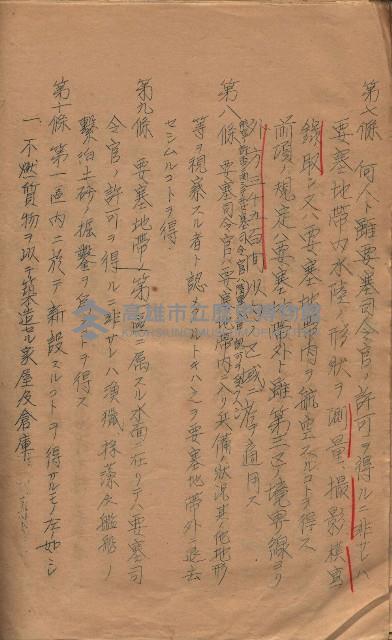 第七條 何人ト雖要塞司令官ノ許可ヲ得ルニ非サレハ
要塞地帶內水陸ノ形狀ヲ測量、撮影、模寫、
錄取シ又ハ要塞地帶內ヲ航空スルコトヲ得ス
前項ノ規定ハ要塞地帶外ト雖第三区ノ境界線ヨリ
外方三千五百間以內ノ区域ニ之ヲ適用ス
第八條 要塞司令官ハ要塞地帶內ニ入リ兵備狀況其ノ他地形
等ヲ視察スル者ト認ムルトキハ之ヲ要塞地帶外ニ退去
セシムルコトヲ得
第九條 要塞地帶ノ第一区ニ屬スル水面ニ在リテハ要塞司
令官ノ許可ヲ得ルニ非サレハ漁獵、採藻及艦船ノ
繫泊土砂掘鑿ヲ為スコトヲ得ス
第十條 第一區內ニ於テ新設スルコトヲ得サルモノ左如シ
一、不燃質物ヲ以テ築造セル家屋及倉庫
高雄市立歷史博物館
KAOHSIUNG MUSEUM